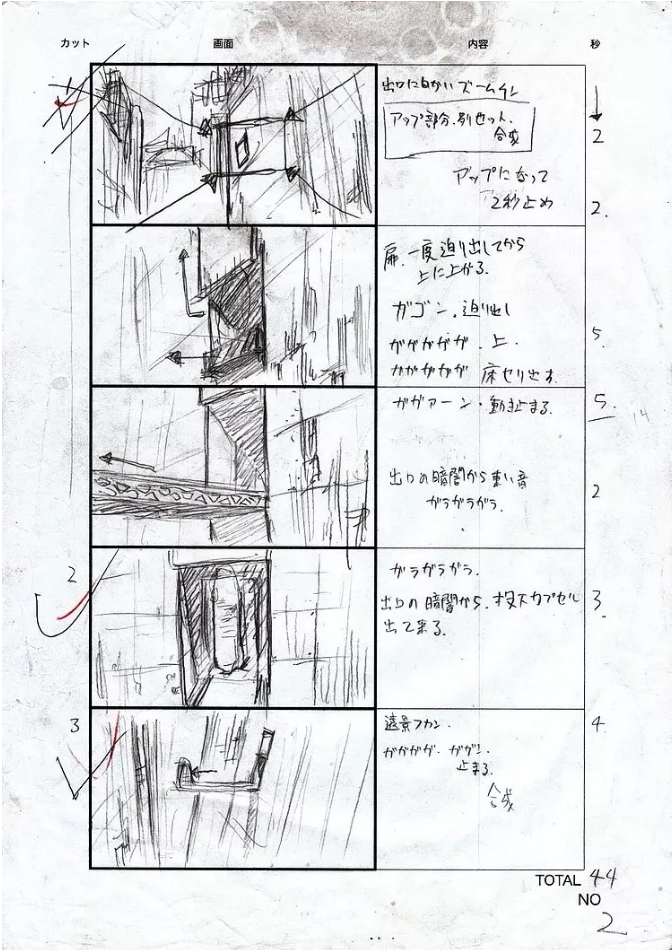 カット 画面 内容 秒
出口に向かいズームイン
アップ部分、別セット、
合成
2
アップになって
2秒止め
2.
扉、一度迫り出してから
上に上がる。
ガゴン、迫り出し
ガガガガガ、上、
5.
ガガガガガ 床せり出す。
ガガァーン・動き止まる。
5.
14
出口の暗闇から重い音
ガラガラガラ。
2
2
ガラガラガラ。
出口の暗闇から、投下カプセル
出て来る。
3.
3
遠景フカン。
4
ガガガガ、ガグン。
止まる。
合成
TOTAL 44
NO
2